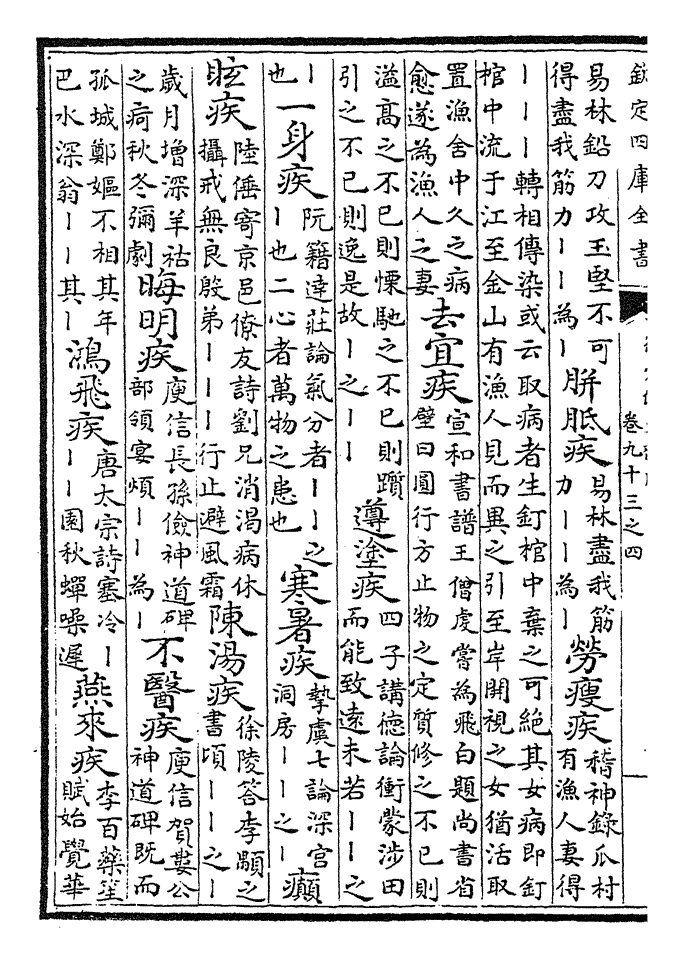 欽定四庫全書
卷九十三之四
易林鉛刀攻玉堅不可
得盡我筋力丨丨為丨
胼胝疾
易林盡我筋
力丨丨為丨
勞瘦疾
稽神錄瓜村
有漁人妻得
丨丨丨轉相傳染或云取病者生釘棺中棄之可絶其女病即釘
棺中流于江至金山有漁人見而異之引至岸開視之女猶活取
置漁舍中久之病
愈遂為漁人之妻
去宜疾
宣和書譜王僧虔嘗為飛白題尚書省
壁曰圓行方止物之定質修之不已則
溢高之不已則慄馳之不已則躓
引之不已則逸是故丨之丨丨
遵塗疾
四子講德論衝蒙涉田
而能致遠未若丨丨之
丨
也
一身疾
阮籍達莊論氣分者丨丨之
丨也二心者萬物之患也
寒暑疾
摯虞七論深宮
洞房丨丨之丨
癲
眩疾
陸倕寄京邑僚友詩劉兄消渴病休
攝戒無良殷弟丨丨行止避風霜
陳湯疾
徐陵答李顒之
書頃丨丨之丨
歲月增深羊祜
之痾秋冬彌劇
晦明疾
庾信長孫儉神道碑
部領宴煩丨丨為丨
不醫疾
庾信賀婁公
神道碑既而
孤城鄭嫗不相其年
巴水深翁丨丨其丨
鴻飛疾
唐太宗詩塞冷丨
丨丨園秋蟬噪遲
燕來疾
李百藥笙
賦始覺華